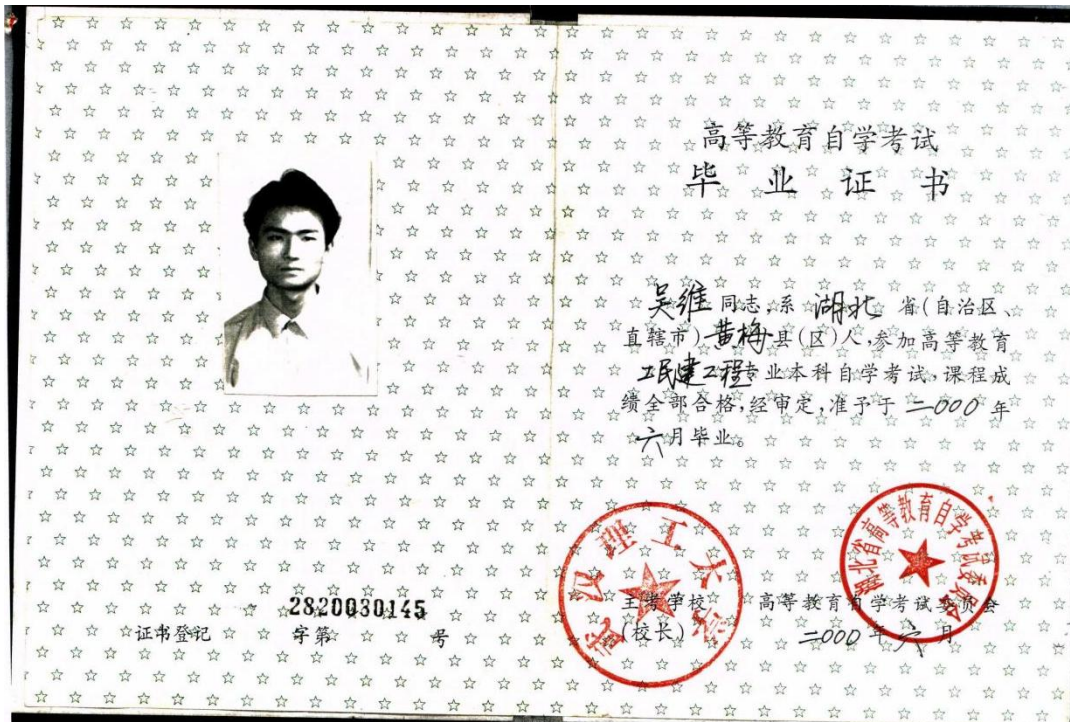 高等教育自学考试
毕业证书
吴维同志,系湖北省(自治区、
直辖市)黄梅县(区)人,参加高等教育
工民建工程专业本科自学考试,课程成
绩全部合格,经审定,准予于二000年
六月毕业。
武汉理工大学
湖北省高等教育自学考试委员会
主考学校
(校长)
高等教育自学考试委员会
二000年六月
2820030145
证书登记 字第 号